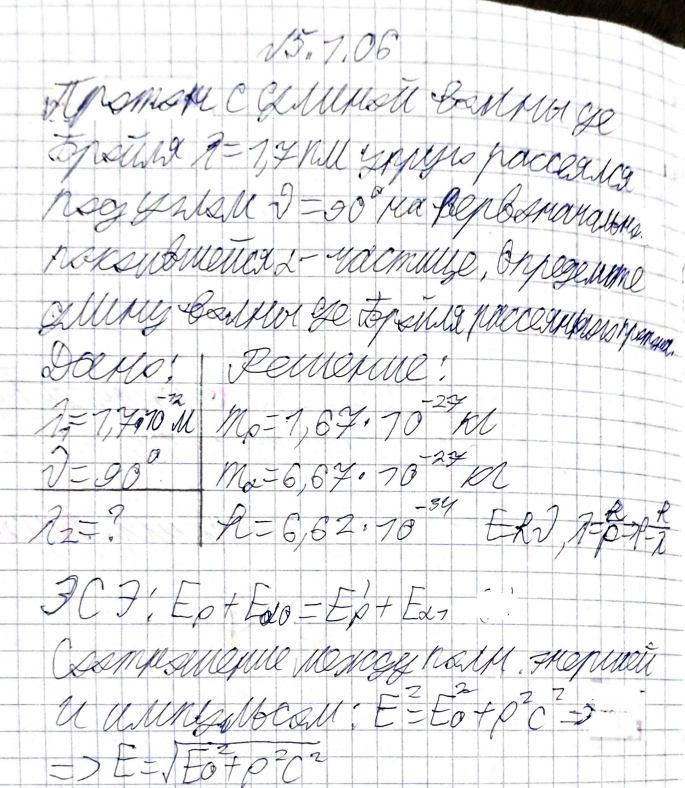 √5.1.06
Протон с длиной волны де
Бройля λ=1,7 пм упруго рассеялся
под углом ϑ=90° на первоначально
покоившейся α-частице. Определите
длину волны де Бройля рассеянного протона.
Дано: Решение:
λ₁=1,7·10⁻¹² м mp=1,67·10⁻²⁷ кг
ϑ=90° mα=6,67·10⁻²⁷ кг
λ₂=? h=6,62·10⁻³⁴ E=hν, λ=h/p⇒p=h/λ
ЗСЭ: Ep+Eα0=E'p+Eα1
Соотношение между полн. энергией
и импульсом: E²=E0²+p²c² =>
=> E=√E0²+p²c²